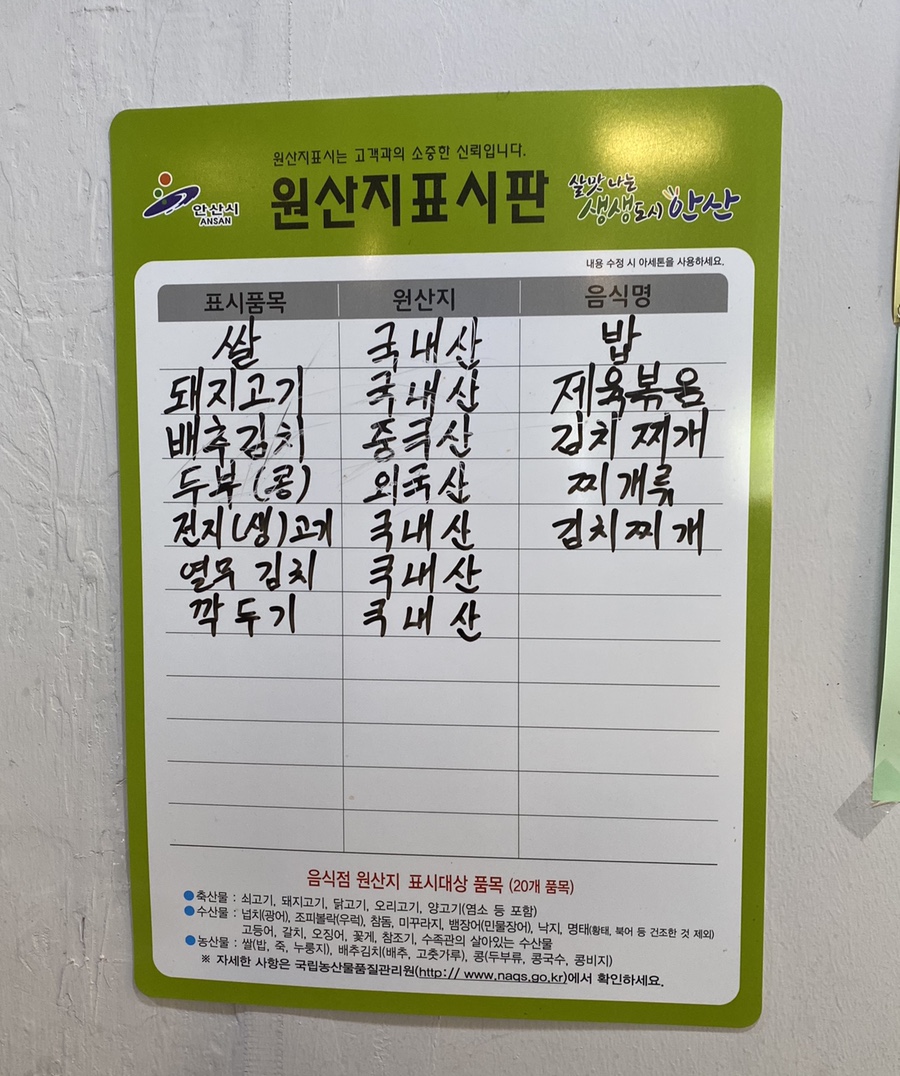 원산지표시는 고객과의 소중한 신뢰입니다.
안산시
ANSAN
원산지표시판
살맛 나는
생생도시 안산
내용 수정 시 아세톤을 사용하세요.
표시품목 원산지 음식명
쌀 국내산 밥
돼지고기 국내산 제육볶음
배추김치 중국산 김치찌개
두부(콩) 외국산 찌개류
전지(생)고기 국내산 김치찌개
열무김치 국내산
깍두기 국내산
음식점 원산지 표시대상 품목 (20개 품목)
●축산물 : 쇠고기, 돼지고기, 닭고기, 오리고기, 양고기(염소 등 포함)
●수산물 : 넙치(광어), 조피볼락(우럭), 참돔, 미꾸라지, 뱀장어(민물장어), 낙지, 명태(황태, 북어 등 건조한 것 제외)
고등어, 갈치, 오징어, 꽃게, 참조기, 수족관의 살아있는 수산물
●농산물 : 쌀(밥, 죽, 누룽지), 배추김치(배추, 고춧가루), 콩(두부류, 콩국수, 콩비지)
※ 자세한 사항은 국립농산물품질관리원(http:// www.naqs.go.kr)에서 확인하세요.